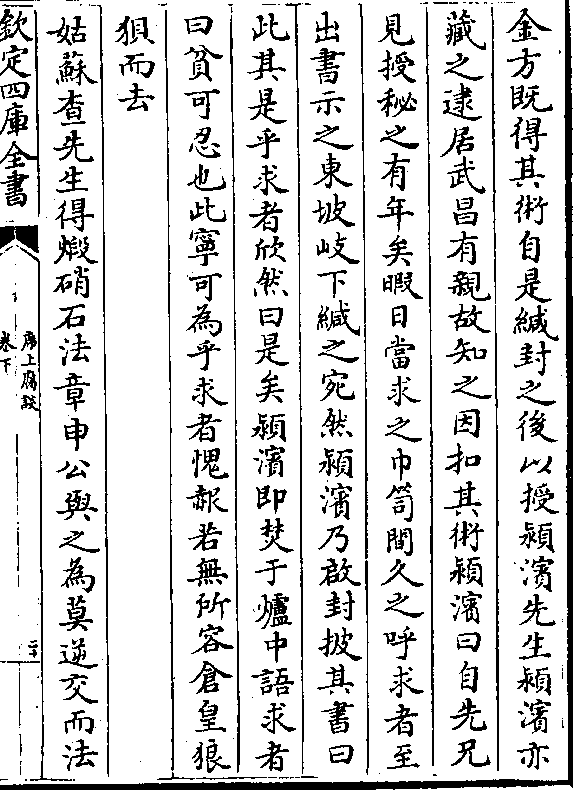 金方既得其術自是緘封之後以授潁濱先生潁濱亦
藏之逮居武昌有親故知之因扣其術潁濱曰自先兄
見授秘之有年矣暇日當求之巾笥間久之呼求者至
出書示之東坡岐下緘之宛然潁濱乃啟封披其書曰
此其是乎求者欣然曰是矣潁濱即焚于爐中語求者
曰貧可忍也此寧可為乎求者愧赧若無所容倉皇狼
狽而去
姑蘇查先生得煅硝石法章申公與之為莫逆交而法
欽定四庫全書
席上腐談
卷下
二十